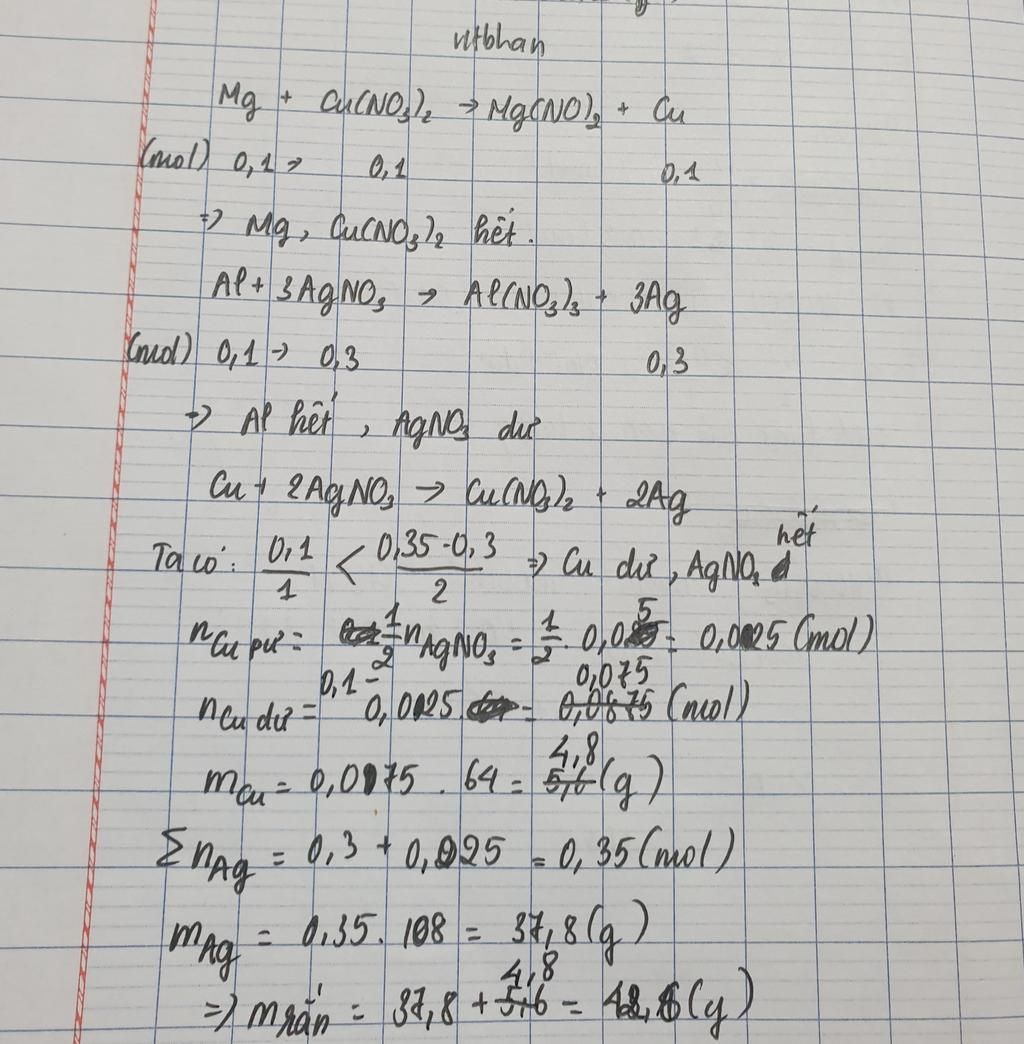 ntbhan
Mg + Cu(NO₃)₂ → Mg(NO)₂ + Cu
(mol) 0,1 → 0,1 0,1
=> Mg, Cu(NO₃)₂ hết.
Al + 3AgNO₃ → Al(NO₃)₃ + 3Ag
(mol) 0,1 → 0,3 0,3
=> Al hết, AgNO₃ dư
Cu + 2AgNO₃ → Cu(NO₃)₂ + 2Ag
Ta có: 0,1/1 < (0,35-0,3)/2 => Cu dư, AgNO₃ hết
n Cu pư = 1/2 n AgNO₃ = 1/2 . 0,05 = 0,025 (mol)
n Cu dư = 0,1 - 0,025 = 0,0875 0,075 (mol)
m Cu = 0,075 . 64 = 5,6 4,8 (g)
Σn Ag = 0,3 + 0,025 = 0,35 (mol)
m Ag = 0,35. 108 = 37,8 (g)
=> m rắn = 37,8 + 5,6 4,8 = 42,6 (g)